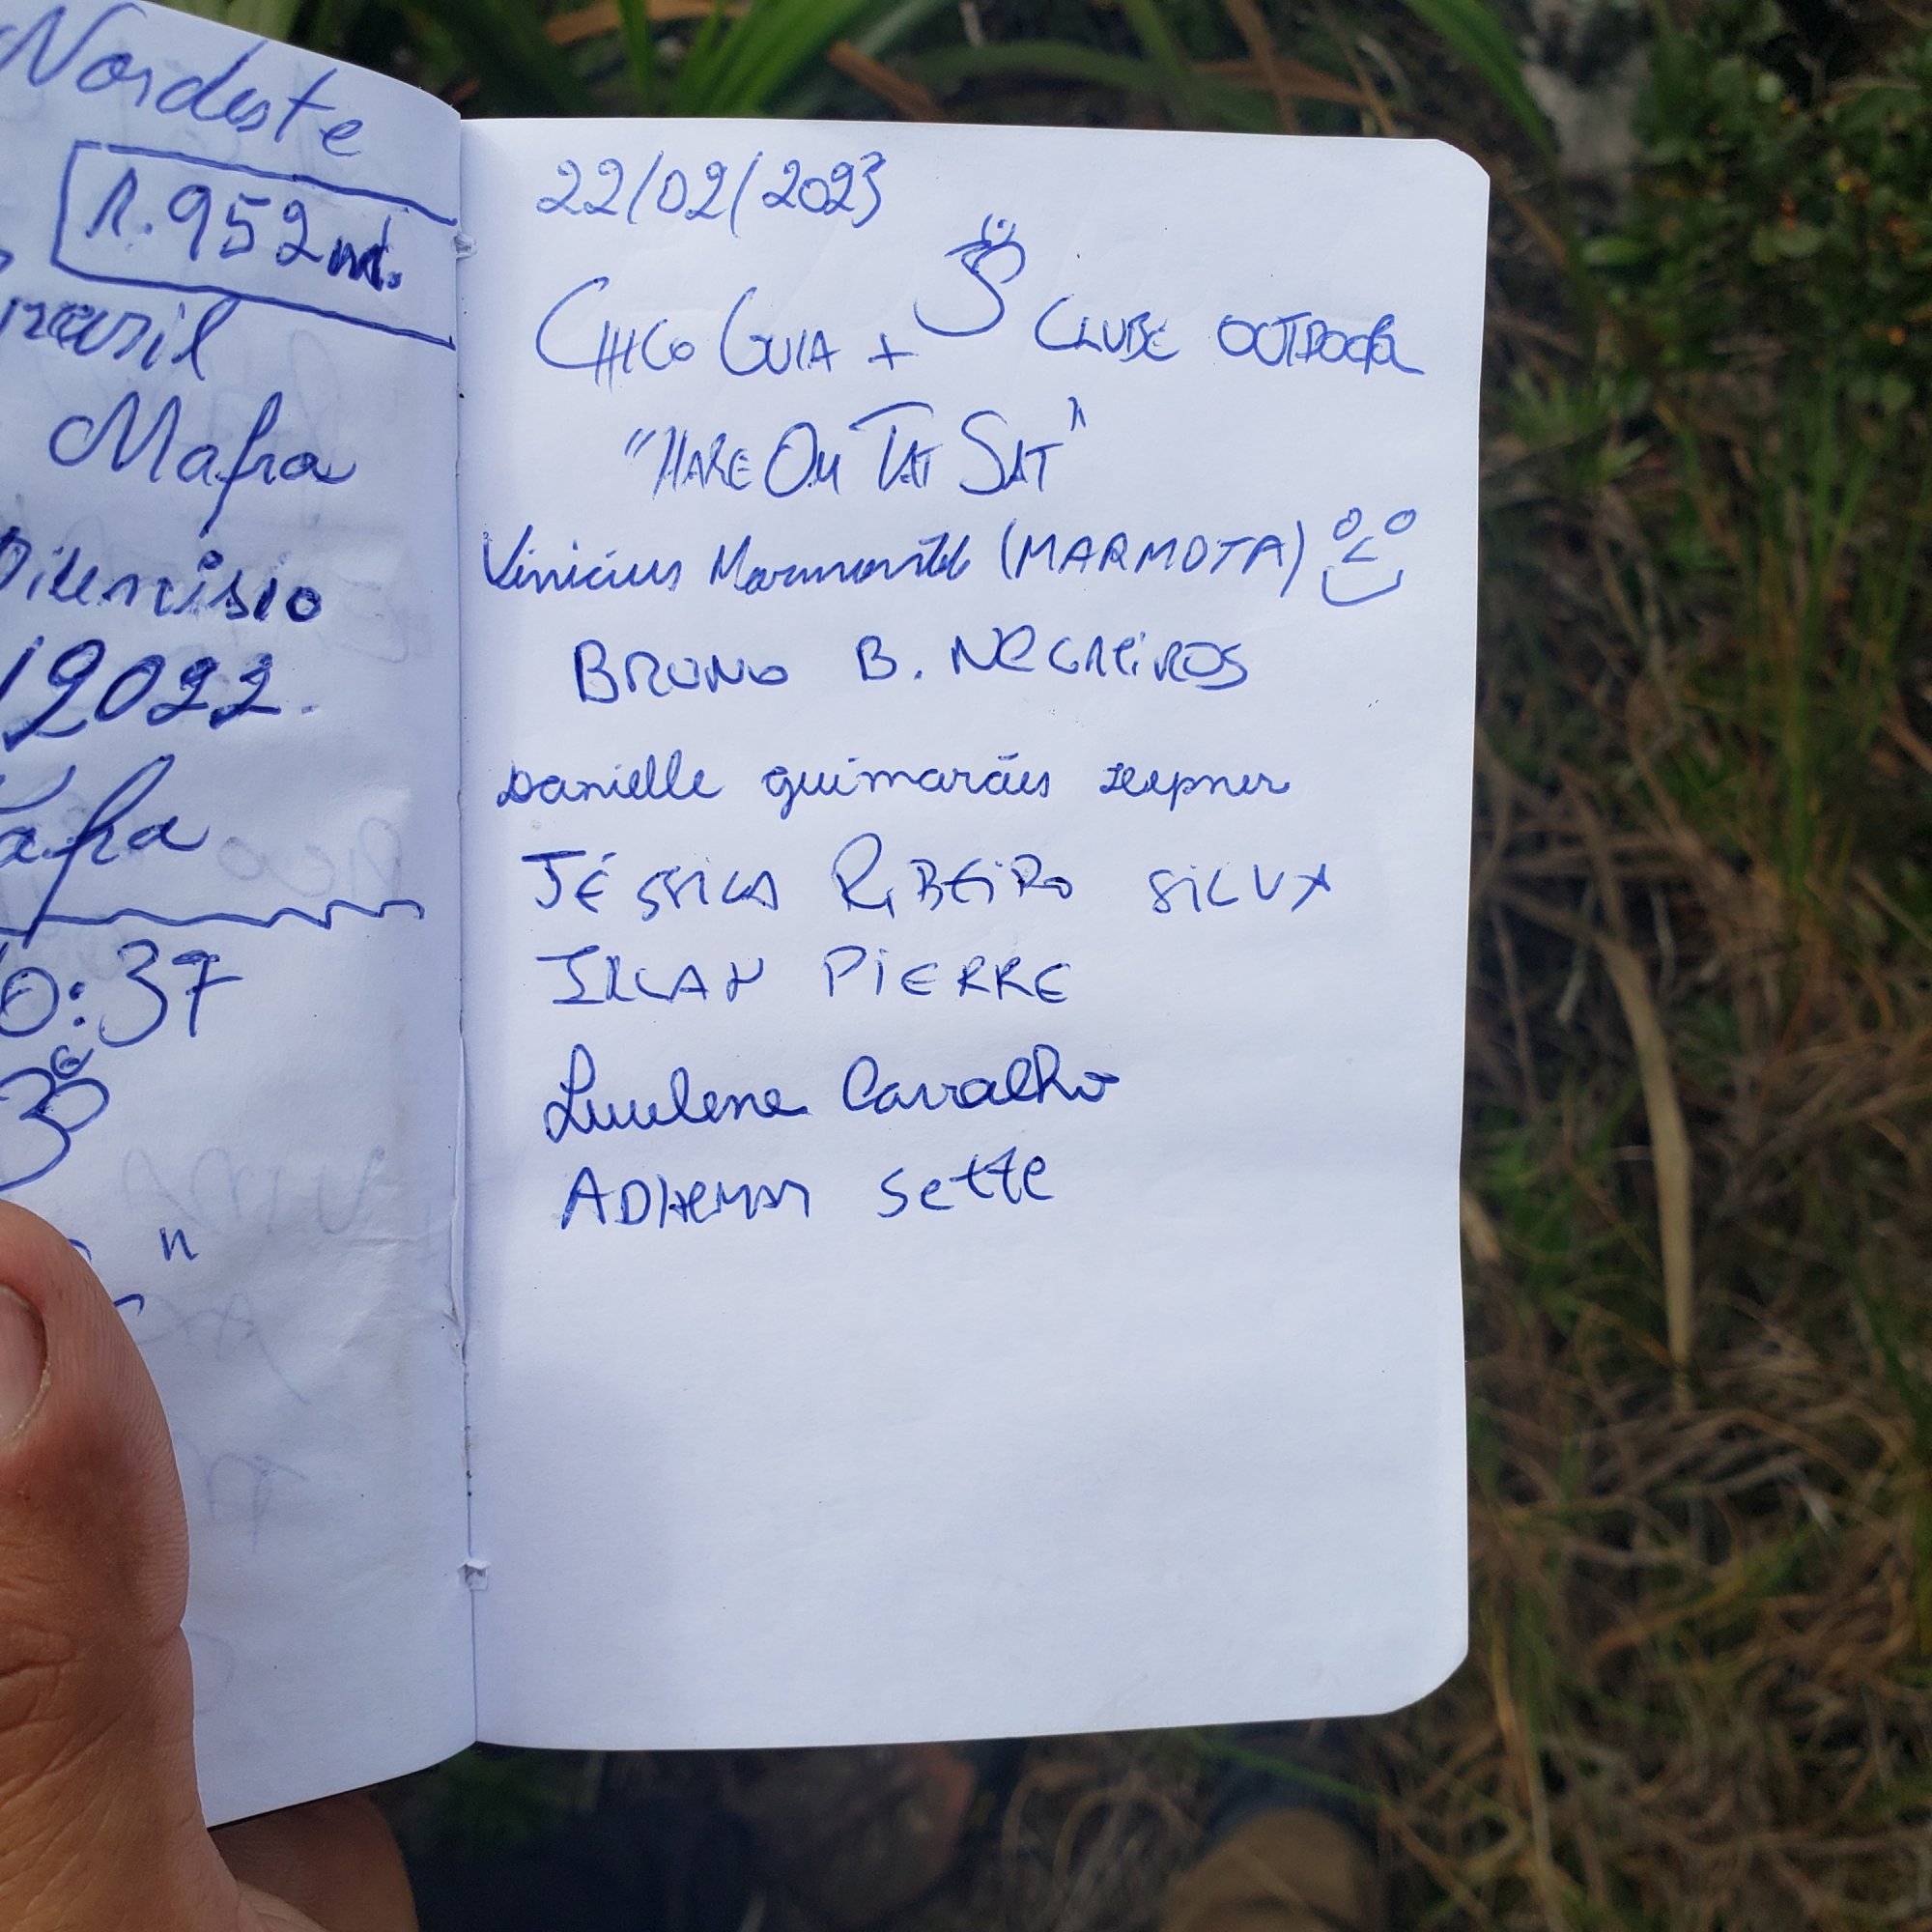 Nordeste
1.952mt.
rasil
Mafra
2022.
afra
0:37
ॐ
"
22/02/2023
CHICO GUIA + ॐ CLUBE OUTDOOR
"HARE OM TAT SAT"
Vinicius (MARMOTA)
BRUNO B. NEGREIROS
Danielle guimarães zepner
JÉSSICA RIBEIRO SILVA
IRLAN PIERRE
Carvalho
ADHEMAR Sette